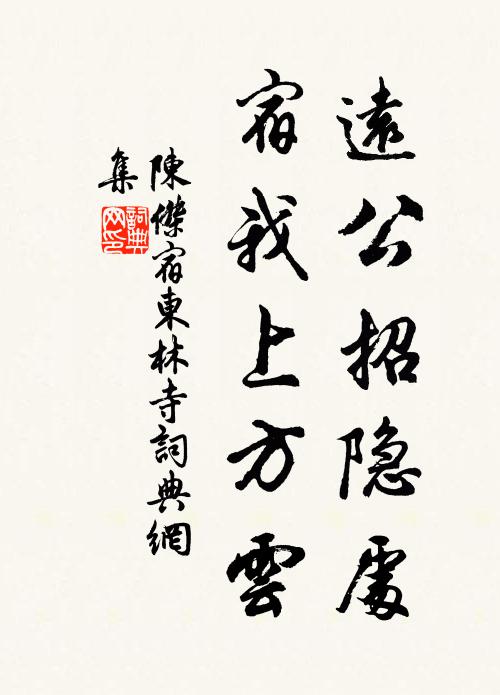 遠公招隐處
宿我上方雲
陳傑宿東林寺詞典網
集
詞典
网印